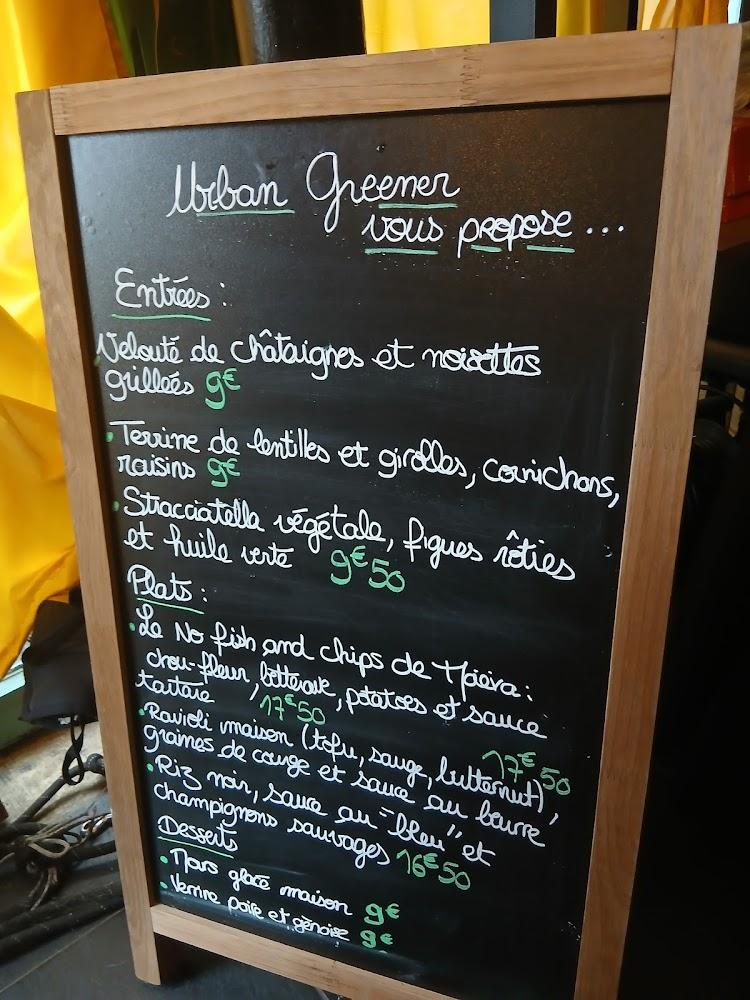 Urban Greener
vous propose...
Entrées :
Velouté de châtaignes et noisettes
grilleés 9€
• Terrine de lentilles et girolles, cornichons,
raisins 9€
• Stracciatella végétale, figues rôties
et huile verte 9€50
Plats :
• Le No fish and chips de Moëva :
chou-fleur, betterave, potatoes et sauce
tartare 17€50
• Ravioli maison (tofu, sauge, butternut),
graines de courge et sauce au beurre 17€50
• Riz noir, sauce au "bleu" et
champignons sauvages 16€50
Desserts
• Mars glacé maison 9€
• Verrine poire et génoise 9€